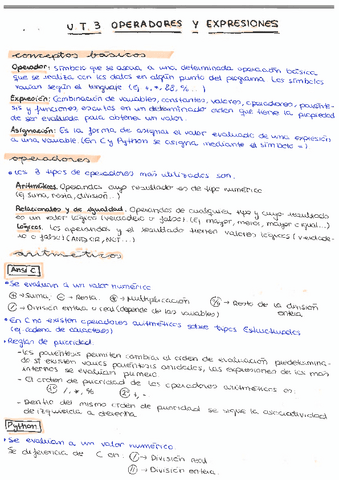 U.T.3 OPERADORES Y EXPRESIONES
conceptos básicos
Operador: Símbolo que se asocia a una determinada operación básica
que se realiza con los datos en algún punto del programa. Los símbolos
varían según el lenguaje (Ej +, *, &&, %...)
Expresión: Combinación de variables, constantes, valores, operadores, parénte-
sis y funciones, escritas en un determinado orden que tiene la propiedad
de ser evaluada para obtener un valor.
Asignación: Es la forma de asignar el valor evaluado de una expresión
a una variable (En C y Python se asigna mediante el símbolo =)
operadores
• Los 3 tipos de operadores más utilizados son.
Aritméticos. Operandos cuyo resultado es de tipo numérico
(Ej suma, resta, división...)
Relacionales y de igualdad. Operandos de cualquier tipo y cuyo resultado
es un valor lógico (verdadero o falso). (Ej mayor, menor, mayor e igual...)
Lógicos. Los operandos y el resultado tienen valores lógicos (verdade-
ro o falso) (AND, OR, NOT...)
aritméticos
Ansi C
• Se evalúan a un valor numérico
+ → Suma, - → Resta * → Multiplicación % → Resto de la división
entera
/ → División entera o real (depende de las variables)
• En C no existen operadores aritméticos sobre tipos Estructurales
(Ej cadena de caracteres)
• Reglas de prioridad.
- Los paréntesis permiten cambiar el orden de evaluación predetermina-
do. Si existen varios paréntesis anidados, las expresiones de los más
internos se evalúan primero.
- El orden de prioridad de los operadores aritméticos es:
1º /, *, % 2º +, -
- Dentro del mismo orden de prioridad se sigue la asociatividad
de izquierda a derecha.
Python
• Se evalúan a un valor numérico.
Se diferencia de C en: / → División real
// → División entera.